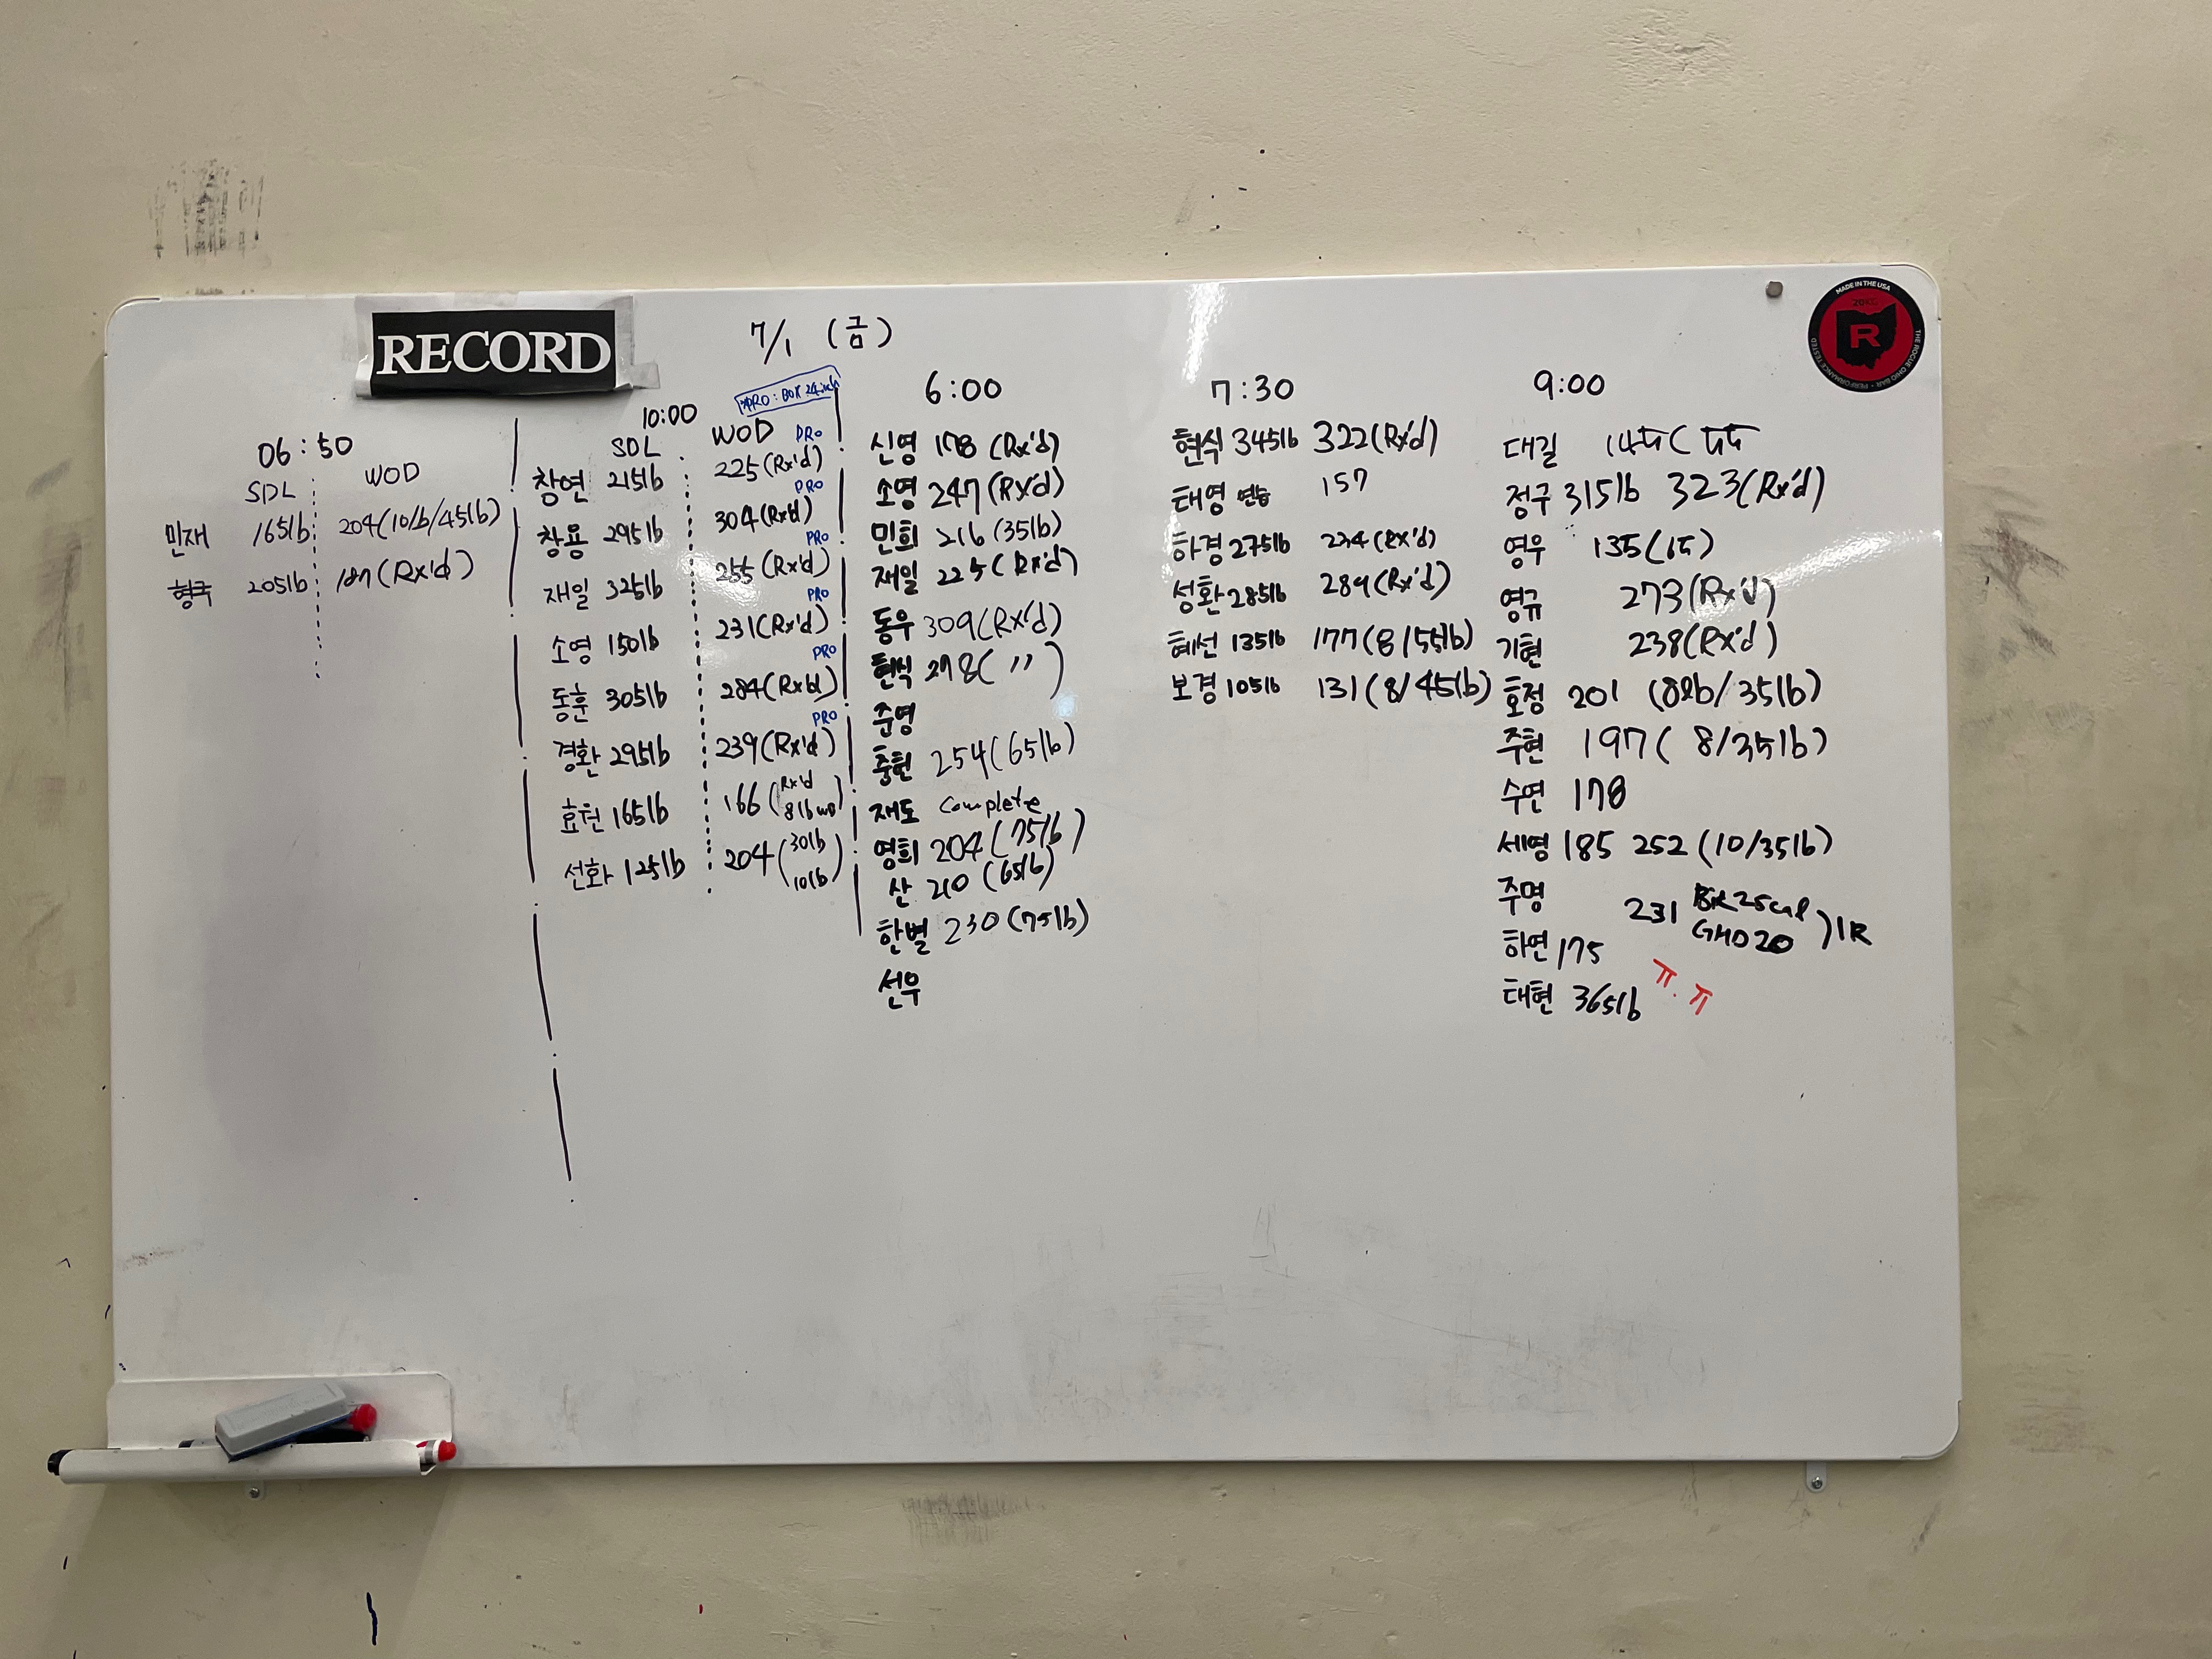 RECORD
7/1 (금)
MADE IN THE USA
20KG
R
THE ROGUE OHIO BAR • PERFORMANCE TESTED
06:50
SDL WOD
민재 165lb 204(10lb/45lb)
형국 205lb 187(Rx'd)
10:00
※PRO : BOX 24inch
SDL WOD
창연 215lb 225(Rx'd) PRO
창용 295lb 304(Rx'd) PRO
재일 325lb 255(Rx'd) PRO
소영 150lb 231(Rx'd) PRO
동훈 305lb 284(Rx'd) PRO
경환 295lb 239(Rx'd) PRO
효원 165lb 166(Rx'd 8lb WB)
선화 125lb 204(30lb 10lb)
6:00
신영 178 (Rx'd)
소영 247(Rx'd)
민희 216 (35lb)
재일 225(Rx'd)
동우 309(Rx'd)
현식 278( " )
준영
충현 254(65lb)
재도 complete
영희 204(75lb)
산 210 (65lb)
한별 230(75lb)
선우
7:30
현식 345lb 322(Rx'd)
태영 연습 157
하경 275lb 234(Rx'd)
성환 285lb 289(Rx'd)
혜선 135lb 177(8/55lb)
보경 105lb 131(8/45lb)
9:00
대길
정구 315lb 323(Rx'd)
영우 135
영규 273(Rx'd)
기현 238(Rx'd)
호정 201 (8lb/35lb)
주현 197( 8/35lb)
수연 178
세영 185 252 (10/35lb)
주명 231 25cal GHD20 )1R
하연 175
태현 365lb ㅠ.ㅠ